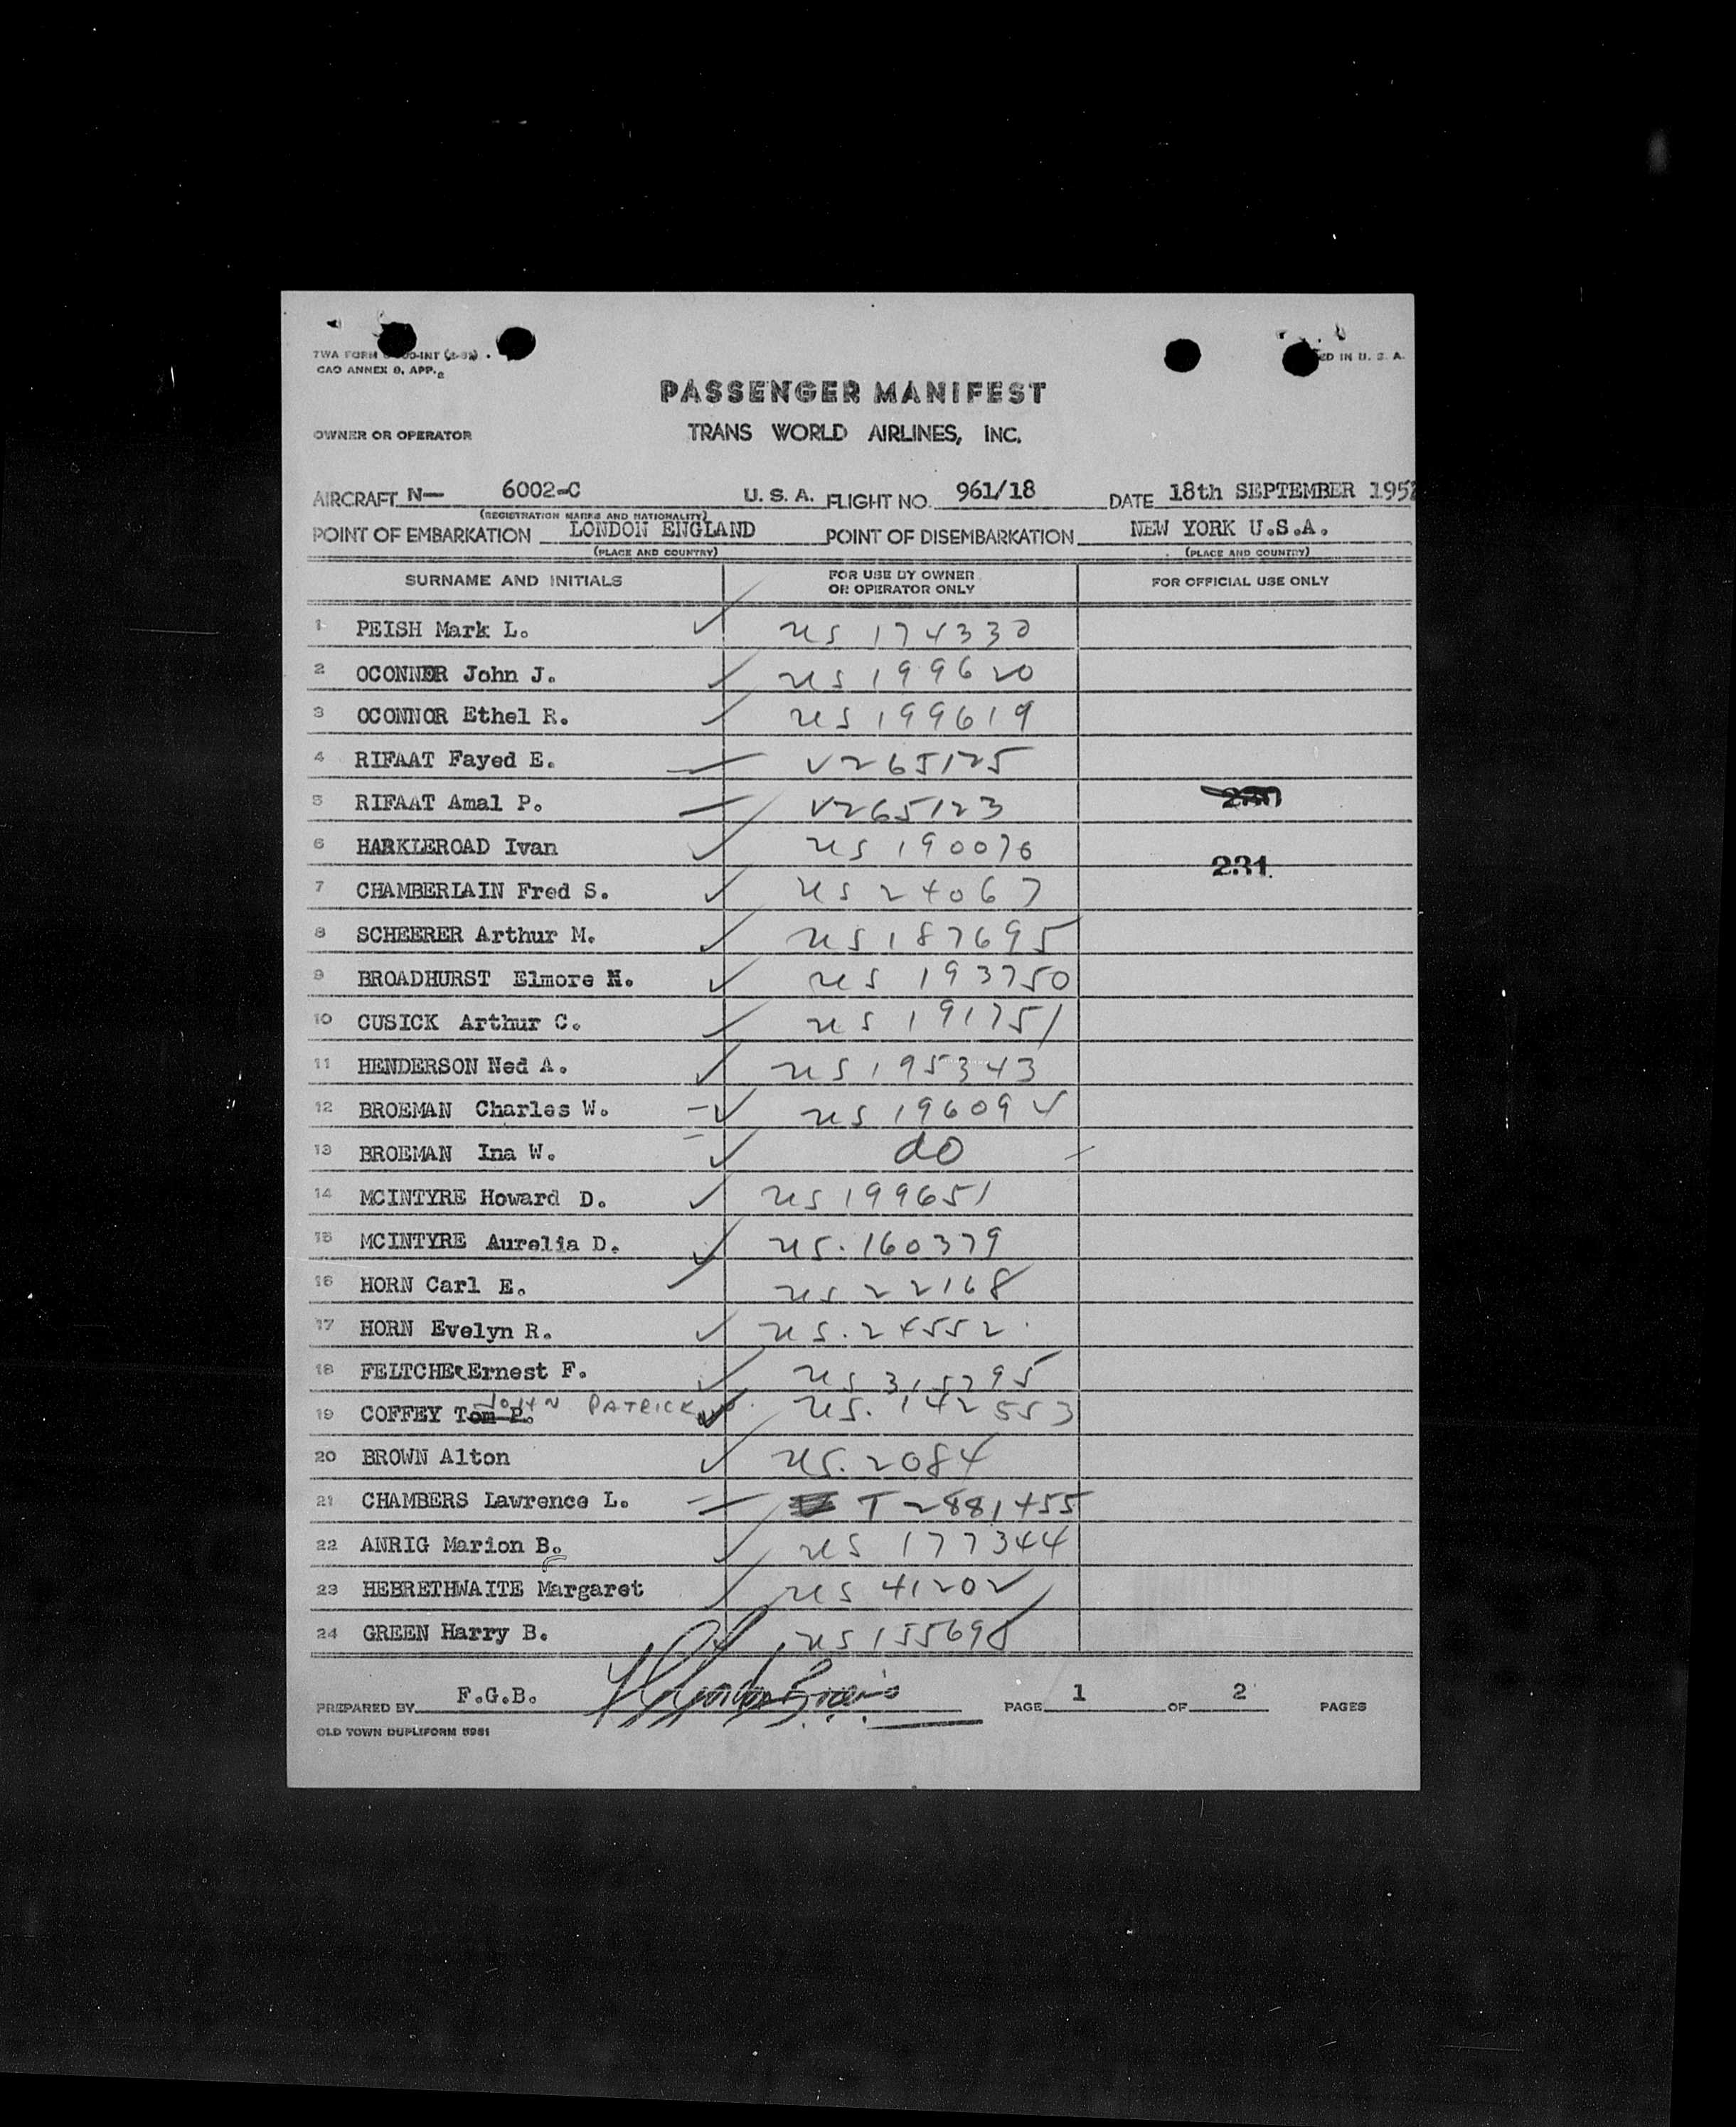 TWA FORM 00-INT
CAO ANNEX 9, APP. 2
ED IN U. S. A.
PASSENGER MANIFEST
OWNER OR OPERATOR TRANS WORLD AIRLINES, INC.
AIRCRAFT N— 6002-C U. S. A. FLIGHT NO. 961/18 DATE 18th SEPTEMBER 195
(REGISTRATION MARKS AND NATIONALITY)
POINT OF EMBARKATION LONDON ENGLAND POINT OF DISEMBARKATION NEW YORK U.S.A.
(PLACE AND COUNTRY) (PLACE AND COUNTRY)
SURNAME AND INITIALS FOR USE BY OWNER OR OPERATOR ONLY FOR OFFICIAL USE ONLY
1 PEISH Mark L. ✓ US 174330
2 OCONNOR John J. ✓ US 199620
3 OCONNOR Ethel R. ✓ US 199619
4 RIFAAT Fayed E. — V265125
5 RIFAAT Amal P. — V265123
6 HARKLEROAD Ivan ✓ US 190076
231.
7 CHAMBERLAIN Fred S. ✓ US 24067
8 SCHEERER Arthur M. ✓ US 187695
9 BROADHURST Elmore N. ✓ US 193750
10 CUSICK Arthur C. ✓ US 191751
11 HENDERSON Ned A. ✓ US 195343
12 BROEMAN Charles W. –✓ US 196094
13 BROEMAN Ina W. –✓ do
14 MCINTYRE Howard D. ✓ US 199651
15 MCINTYRE Aurelia D. ✓ US. 160379
16 HORN Carl E. ✓ US 22168
17 HORN Evelyn R. ✓ US. 24552
18 FELTCHER Ernest F. ✓ US 315295
19 COFFEY Tom P. JOHN PATRICK ✓ US. 142553
20 BROWN Alton ✓ US. 2084
21 CHAMBERS Lawrence L. — T 2881455
22 ANRIG Marion B. ✓ US 177344
23 HEBRETHWAITE Margaret ✓ US 41202
24 GREEN Harry B. ✓ US 155698
PREPARED BY F.G.B. PAGE 1 OF 2 PAGES
OLD TOWN DUPLIFORM 5981